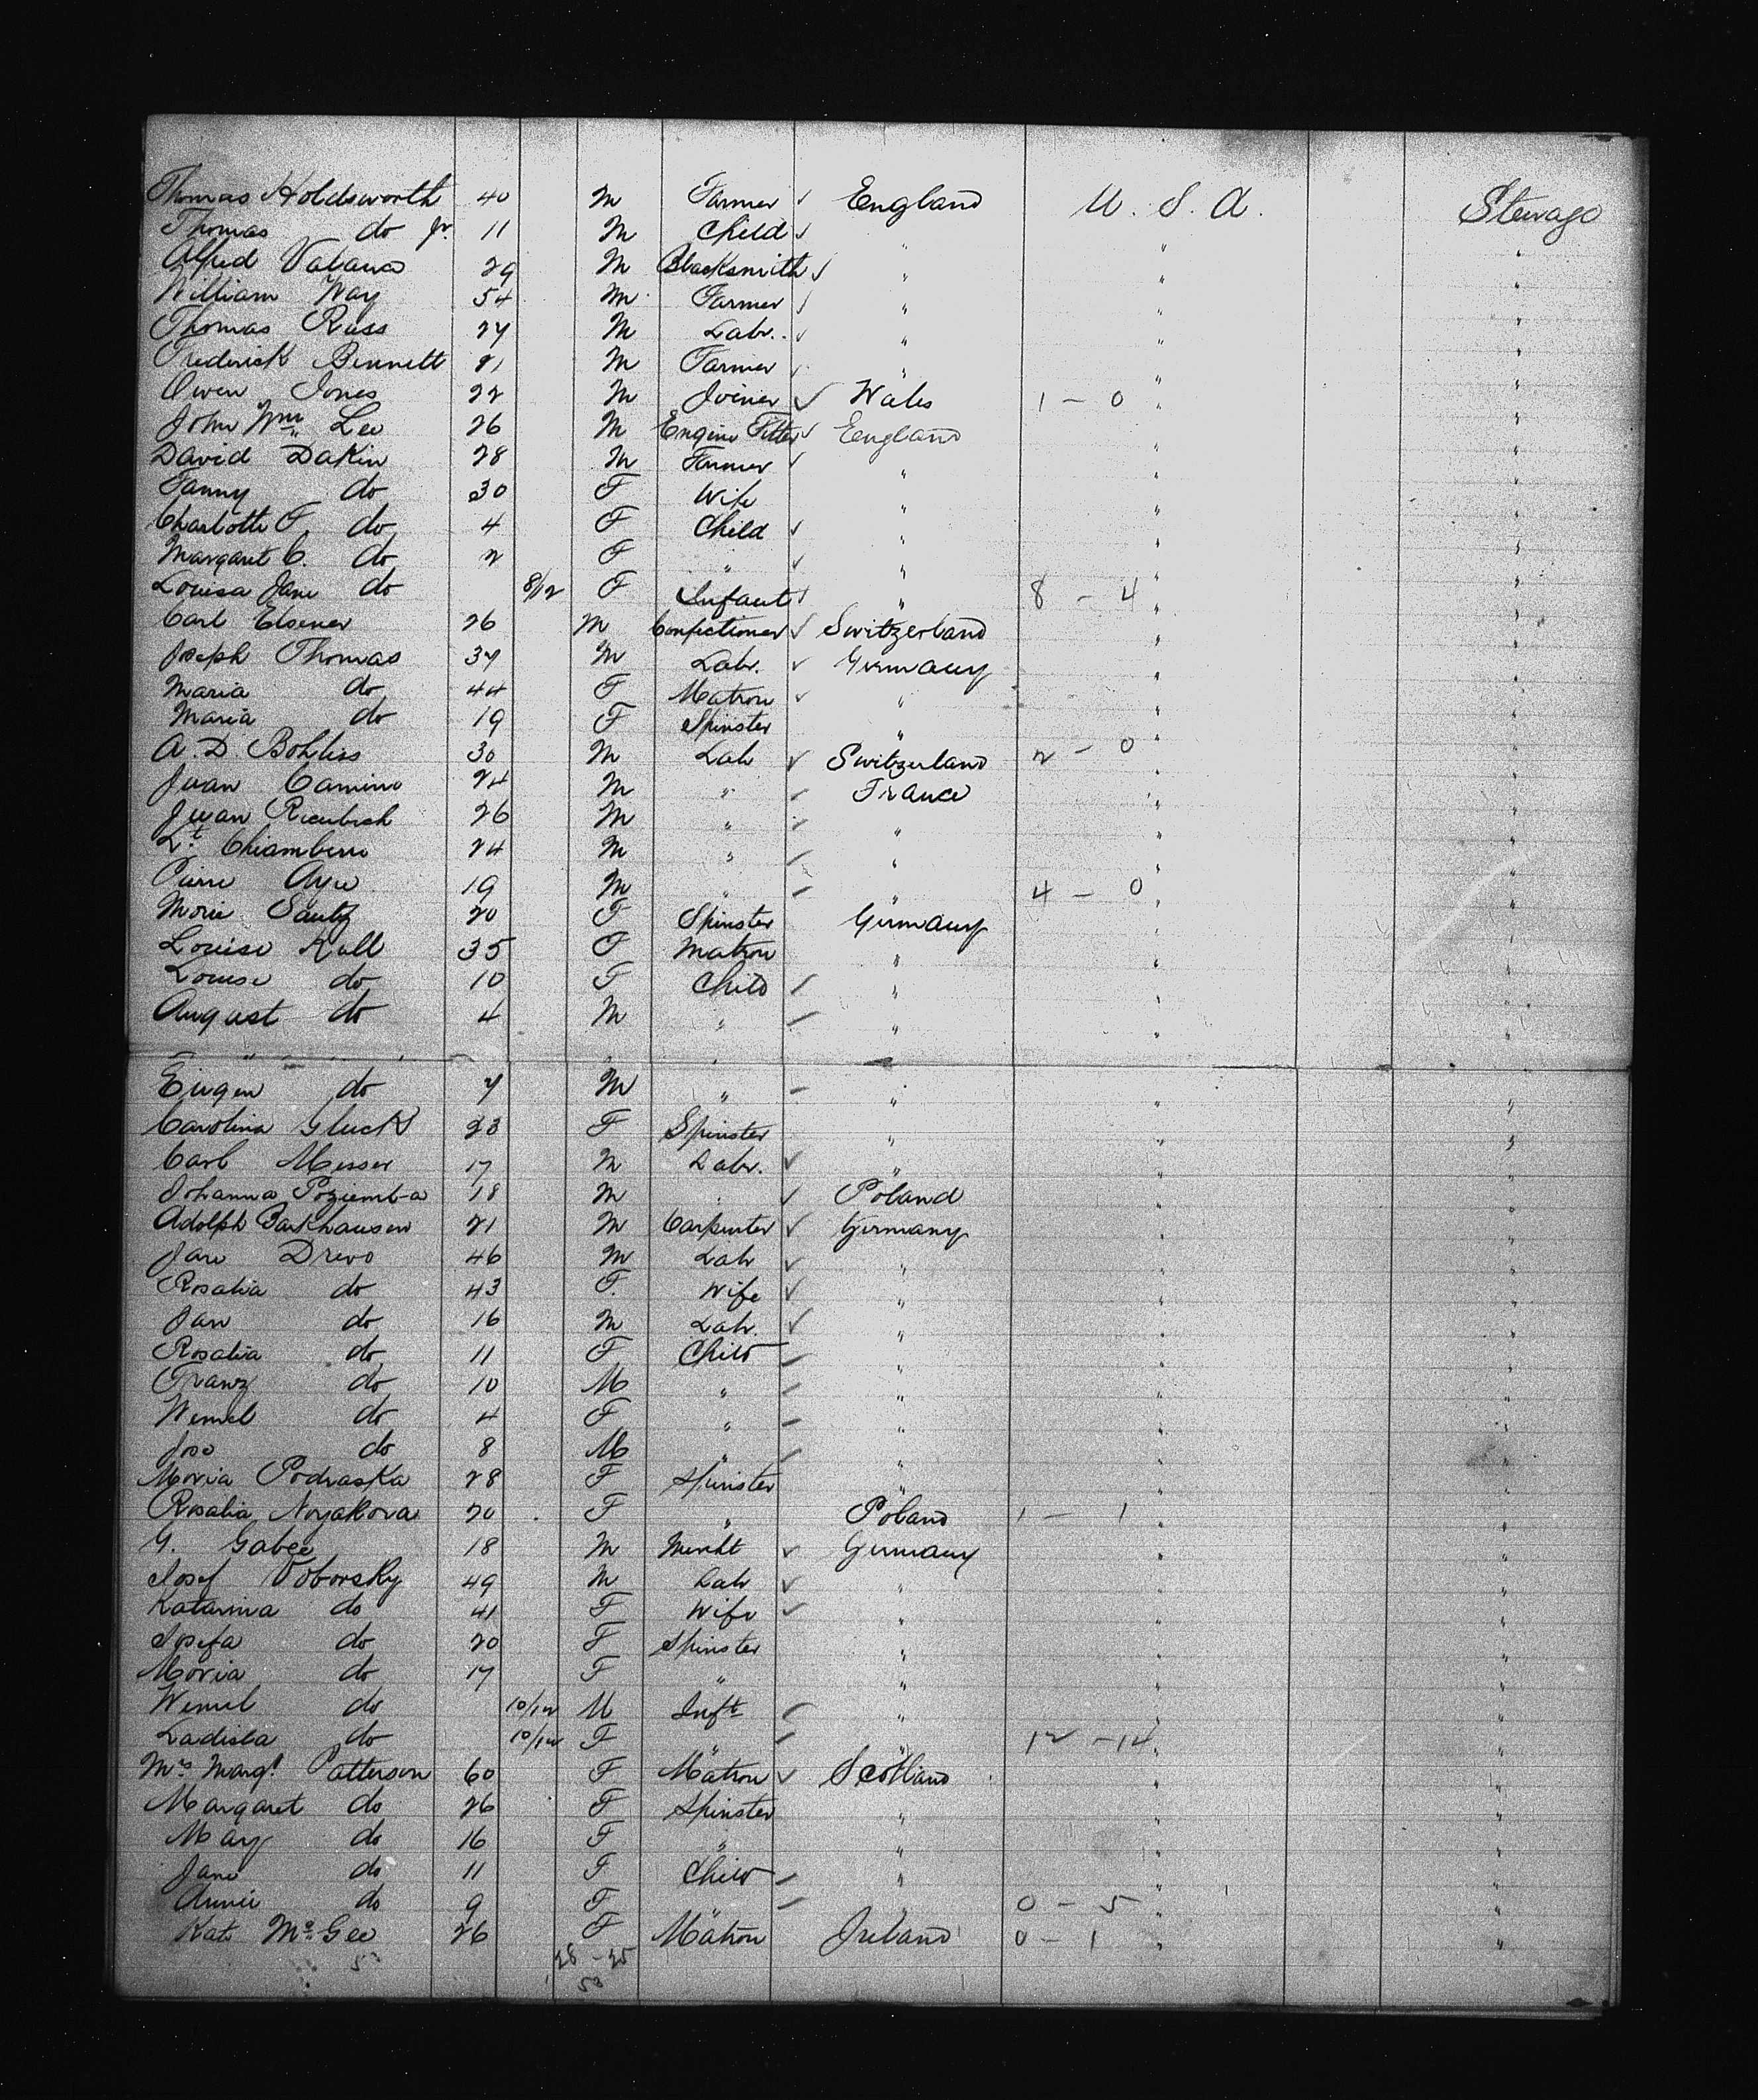 Thomas Holdsworth 40 M Farmer ✓ England U. S. A. Steerage
Thomas do Jr. 11 M Child ✓ " " "
Alfred 29 M Blacksmith ✓ " " "
William Way 54 M Farmer ✓ " " "
Thomas Russ 27 M Labr. ✓ " " "
Frederick Bennett 21 M Farmer ✓ " " "
Owen Jones 22 M Joiner ✓ Wales 1 - 0 " "
John Wm Lee 26 M Engine Fitter ✓ England " "
David Dakin 28 M Farmer ✓ " " "
Fanny do 30 F Wife " " "
Charlotte F. do 4 F Child ✓ " " "
Margaret C. do 2 F " ✓ " " "
Louisa Jane do 8/12 F Infant ✓ " 8 - 4 " "
Carl Elsener 26 M Confectioner ✓ Switzerland " "
Joseph Thomas 37 M Labr. ✓ Germany " "
Maria do 44 F Matron ✓ " " "
Maria do 19 F Spinster " " "
A. D. Bohliss 30 M Labr ✓ Switzerland 2 - 0 " "
Juan Camino 24 M " ✓ France " "
Juan 26 M " ✓ " " "
Lt. Chiamberre 24 M " ✓ " " "
Pierre Aye 19 M " ✓ " 4 - 0 " "
Morie Sautz 20 F Spinster Germany " "
Louise Kull 35 F Matron " " "
Louise do 10 F Child ✓ " " "
August do 4 M " ✓ " " "
Eugen do 7 M " ✓ " " "
Carolina Gluck 23 F Spinster " " "
Carl Messer 17 M Labr. ✓ " " "
Johanna Poziemba 18 M " ✓ Poland " "
Adolph Barkhausen 21 M Carpenter ✓ Germany " "
Jan Drevo 46 M Labr ✓ " " "
Rosalia do 43 F. Wife ✓ " " "
Jan do 16 M Labr. ✓ " " "
Rosalia do 11 F Child ✓ " " "
Franz do 10 M " ✓ " " "
Wenzel do 4 F " ✓ " " "
Jose do 8 M " ✓ " " "
Moria Podraska 28 F Spinster " " "
Rosalia Noyakova 20 F " Poland 1 - 1 " "
G. Gabee 18 M Mercht ✓ Germany " "
Josef Voborsky 49 M Labr ✓ " " "
Katarina do 41 F Wife ✓ " " "
Josefa do 20 F Spinster " " "
Moria do 17 F " " " "
Wenzel do 10/12 M Inft ✓ " " "
Ladisla do 10/12 F " ✓ " 12 - 14 " "
Mrs Margt Patterson 60 F Matron ✓ Scotland " "
Margaret do 26 F Spinster " " "
Mary do 16 F " " " "
Jane do 11 F Child ✓ " " "
Annie do 9 F " ✓ 0 - 5 " "
Kate McGee 26 F Matron Ireland 0 - 1 " "
53 28 - 25
53